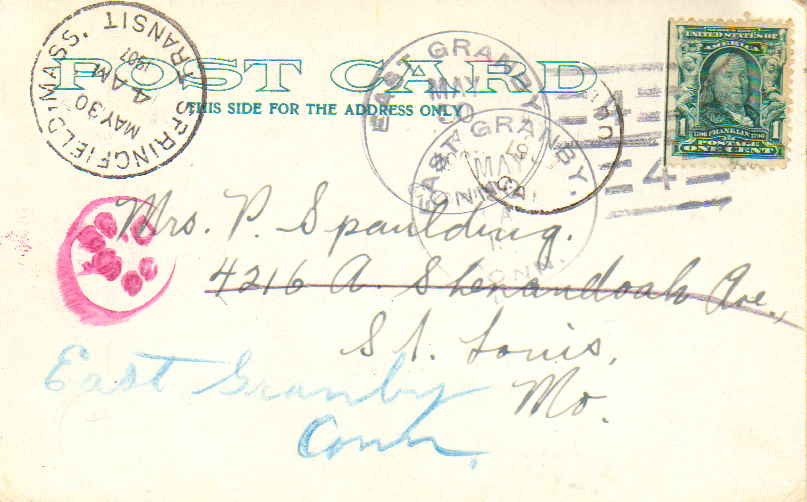 POST CARD
THIS SIDE FOR THE ADDRESS ONLY
SPRINGFIELD, MASS. TRANSIT
MAY 30
4 AM
1907
EAST GRANBY
MAY
30
EAST GRANBY.
MAY
CONN.
4
UNITED STATES OF
AMERICA
1790 FRANKLIN 1790
POSTAGE
1 ONE CENT 1
Mrs. P. Spaulding.
4216 A. Shenandoah Ave.,
St. Louis,
Mo.
East Granby
Conn.